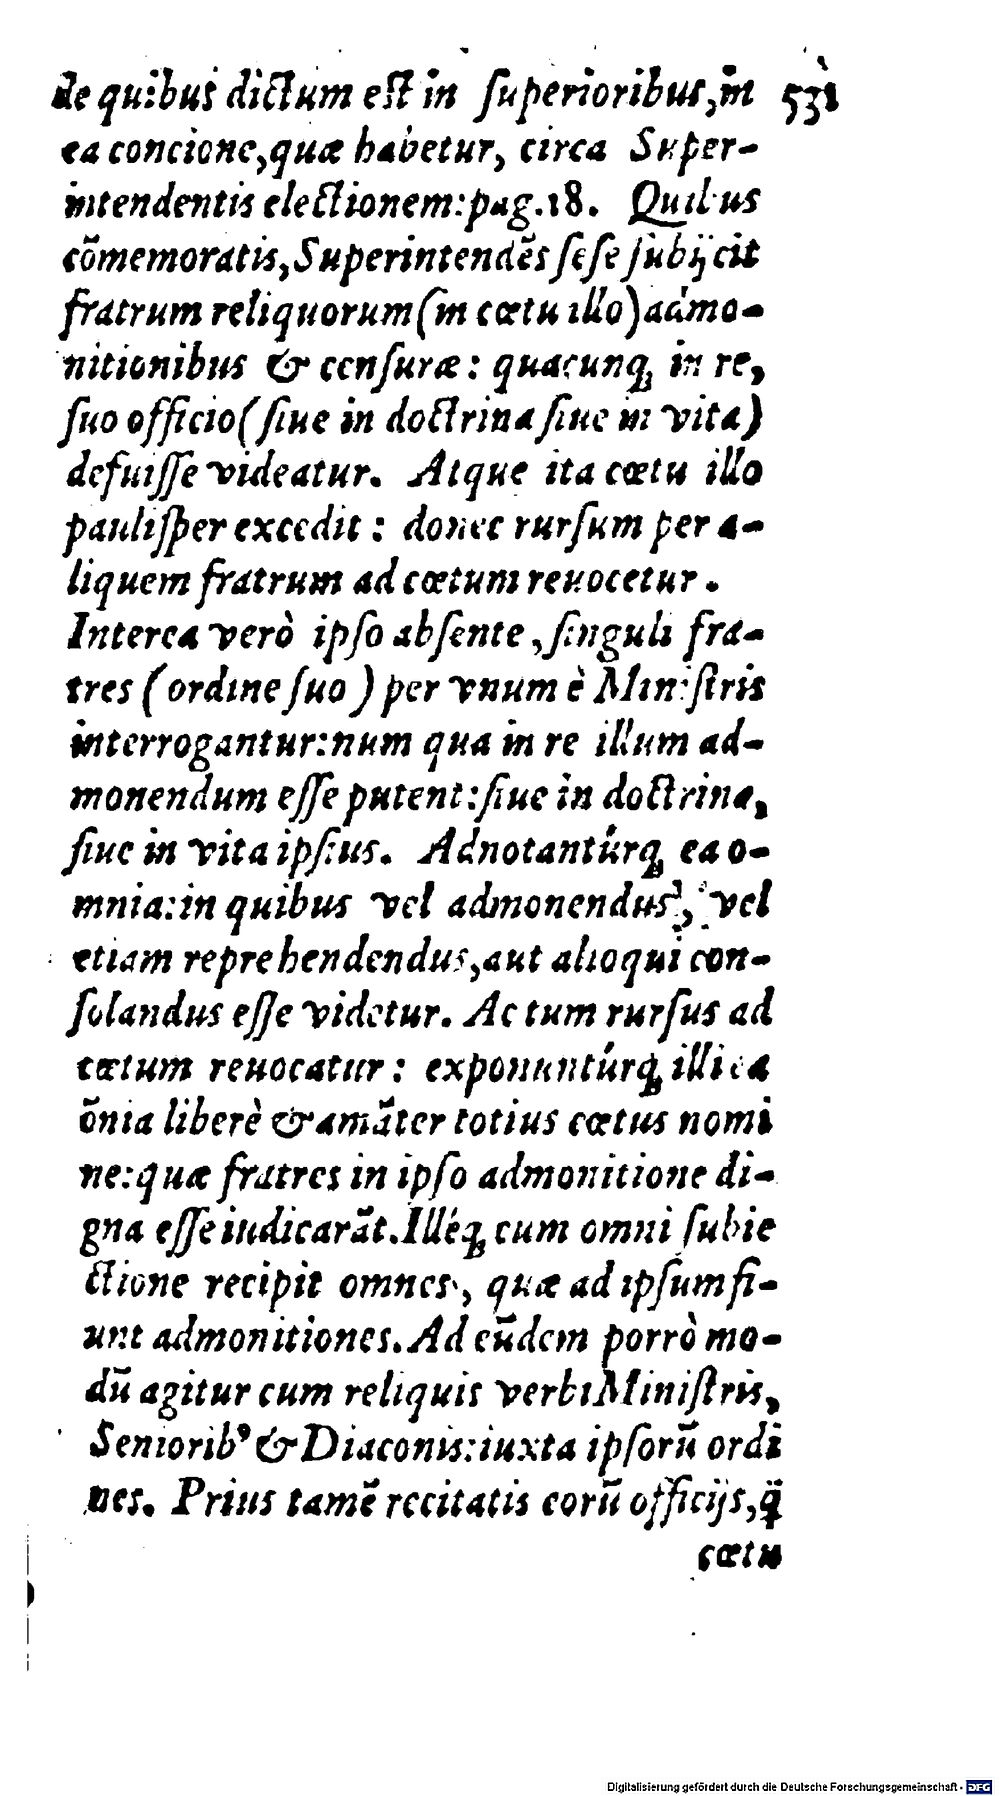 de quibus dictum est in ſuperioribus, in 531
ea concione, quæ habetur, circa Super-
intendentis electionem: pag. 18. Quibus
cõmemoratis, Superintendẽs ſeſe ſubijcit
fratrum reliquorum (in cœtu illo) admo-
nitionibus & cenſuræ: quacunq; in re,
ſuo officio (ſiue in doctrina ſiue in vita)
defuiſſe videatur. Atque ita cœtu illo
pauliſper excedit: donec rurſum per a-
liquem fratrum ad cœtum reuocetur.
Interea verò ipſo abſente, ſinguli fra-
tres (ordine ſuo) per vnum è Miniſtris
interrogantur: num qua in re illum ad-
monendum eſſe putent: ſiue in doctrina,
ſiue in vita ipſius. Adnotantúrq; ea o-
mnia: in quibus vel admonendus, vel
etiam reprehendendus, aut alioqui con-
ſolandus eſſe videtur. Ac tum rurſus ad
cœtum reuocatur: exponuntúrq; illi ea
õnia liberè & amãter totius cœtus nomi
ne: quæ fratres in ipſo admonitione di-
gna eſſe iudicarãt. Illéq; cum omni ſubie
ctione recipit omnes, quæ ad ipſum fi-
unt admonitiones. Ad eũdem porrò mo-
dũ agitur cum reliquis verbi Miniſtris,
Seniorib⁹ & Diaconis: iuxta ipſorũ ordi
nes. Prius tamẽ recitatis eorũ officijs, q̃
cœtu
Digitalisierung gefördert durch die Deutsche Forschungsgemeinschaft - DFG